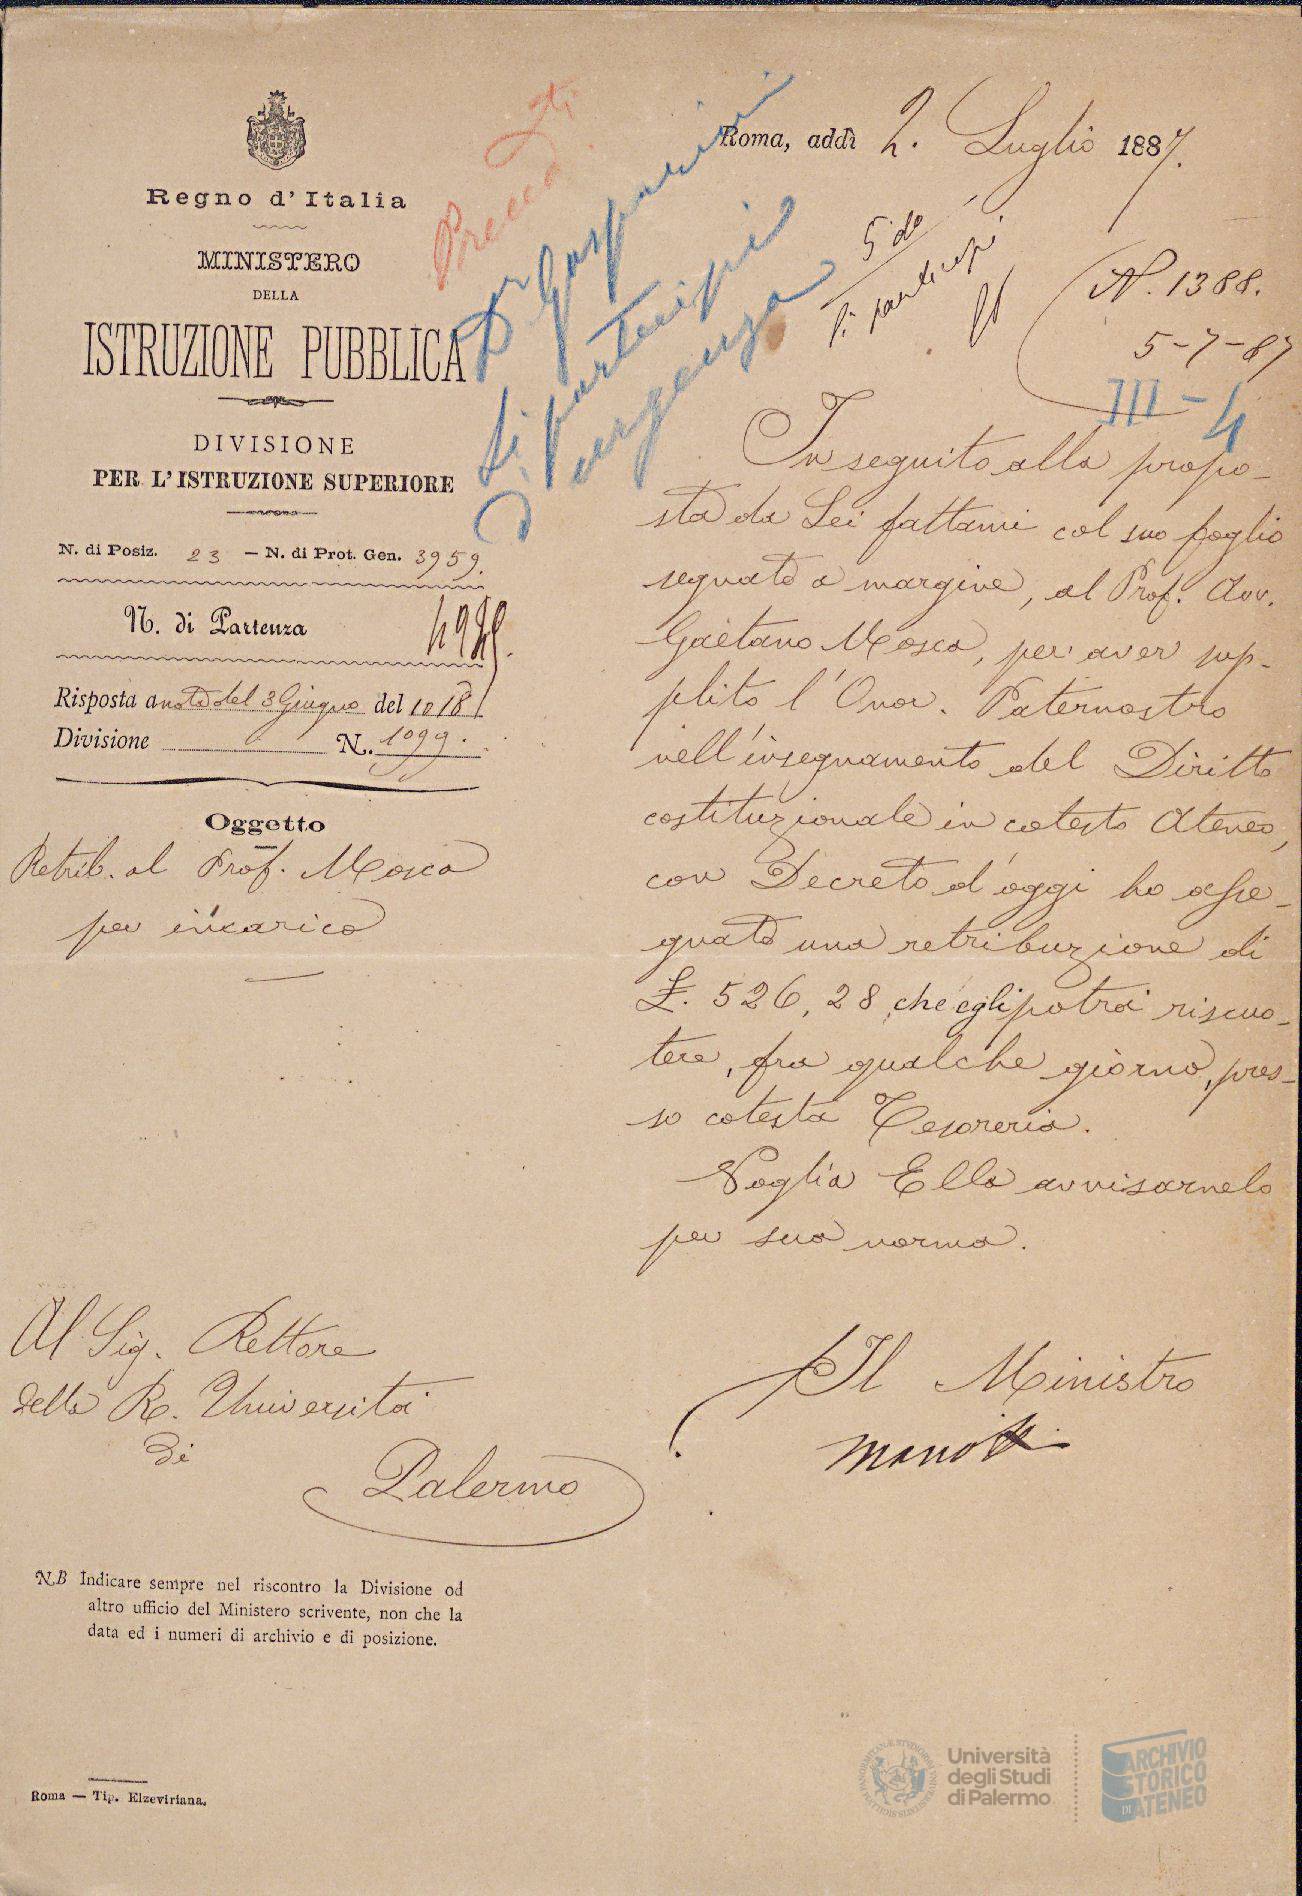 Regno d'Italia
MINISTERO
DELLA
ISTRUZIONE PUBBLICA
DIVISIONE
PER L'ISTRUZIONE SUPERIORE
N. di Posiz. 23 — N. di Prot. Gen. 3959.
N. di Partenza
Risposta a nota del 3 Giugno del
Divisione N. 1099.
Oggetto
Retrib. al Prof. Mosca
per incarico
Precedti
Dr Gasparini
Si partecipi
d'urgenza
Roma, addì 2. Luglio 1887.
5 do
Si partecipi
N. 1388.
5-7-87
III-4
In seguito alla propo-
sta da Lei fattami col suo foglio
segnato a margine, al Prof. Avv.
Gaetano Mosca, per aver sup-
plito l'Onor. Paternostro
nell'insegnamento del Diritto
costituzionale in cotesto Ateneo,
con Decreto d'oggi ho asse-
gnato una retribuzione di
£. 526,28 che egli potrà riscuo-
tere, fra qualche giorno, pres-
so cotesta Tesoreria.
Voglia Ella avvisarnelo
per sua norma.
Il Ministro
Al Sig. Rettore
della R. Università
di
Palermo
N.B Indicare sempre nel riscontro la Divisione od
altro ufficio del Ministero scrivente, non che la
data ed i numeri di archivio e di posizione.
Roma — Tip. Elzeviriana.
Università
degli Studi
di Palermo
ARCHIVIO
STORICO
DI ATENEO